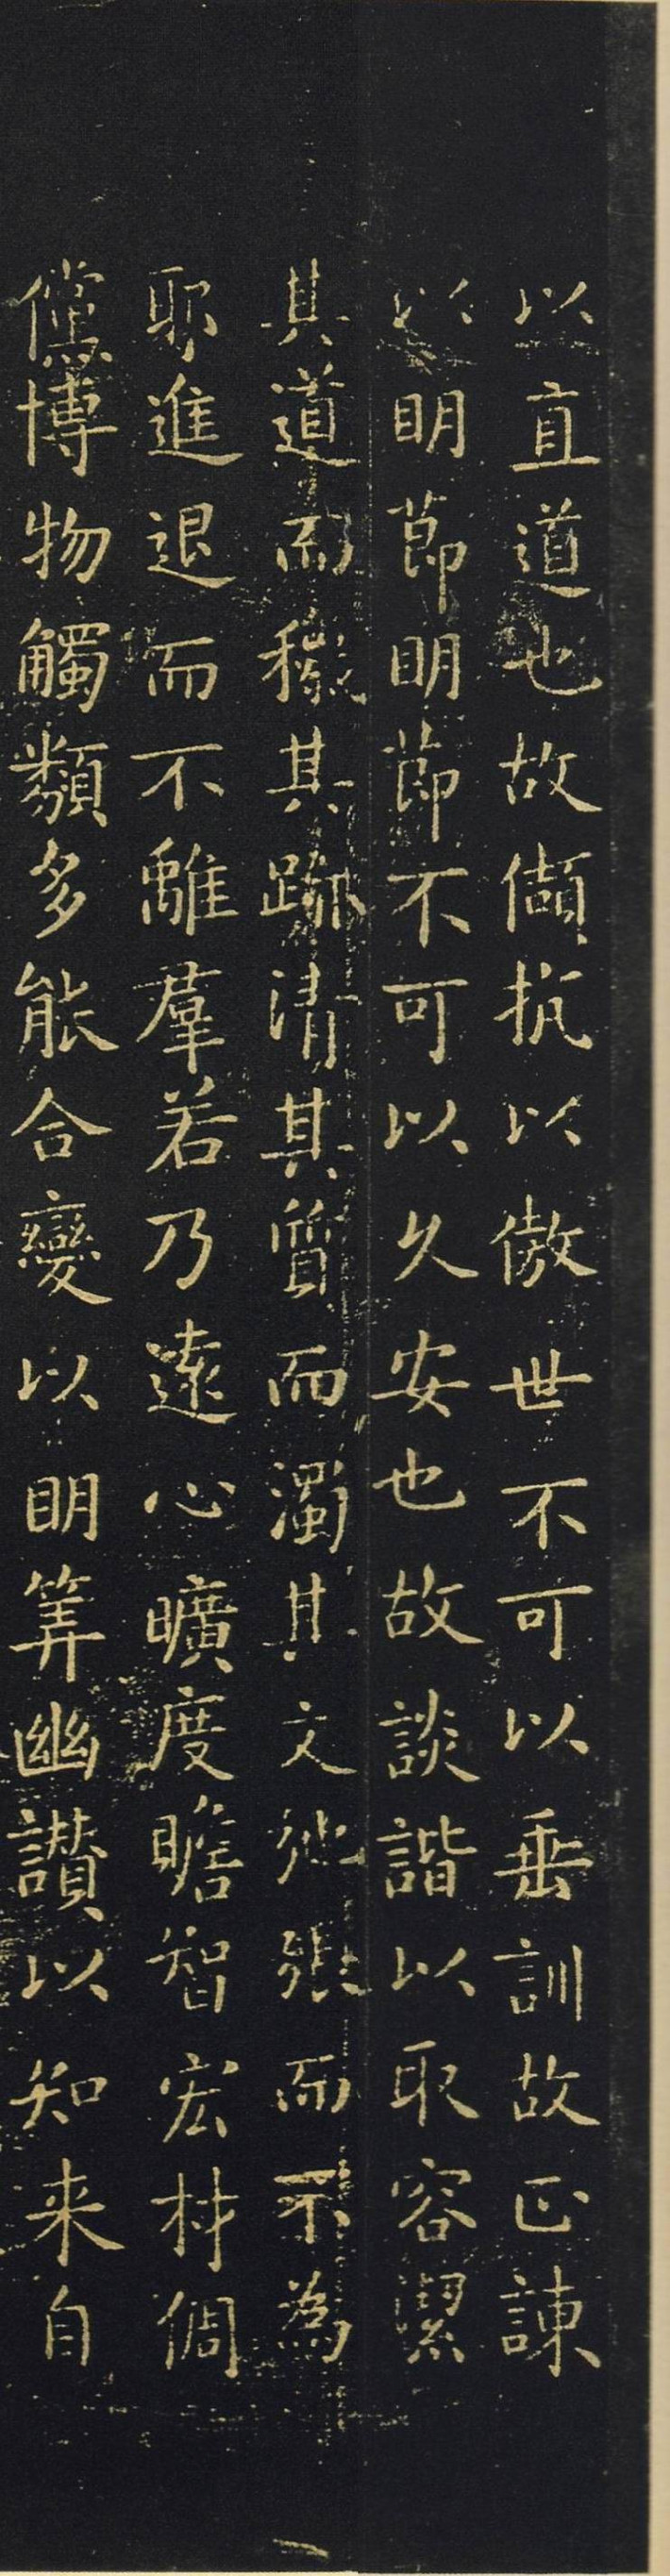 以直道也故傾抗以傲世不可以垂訓故正諫
以明節明節不可以久安也故談諧以取容潔
其道而穢其跡清其質而濁其文弛張而不為
耶進退而不離羣若乃遠心曠度瞻智宏材倜
儻博物觸類多能合變以明筭幽讃以知来自